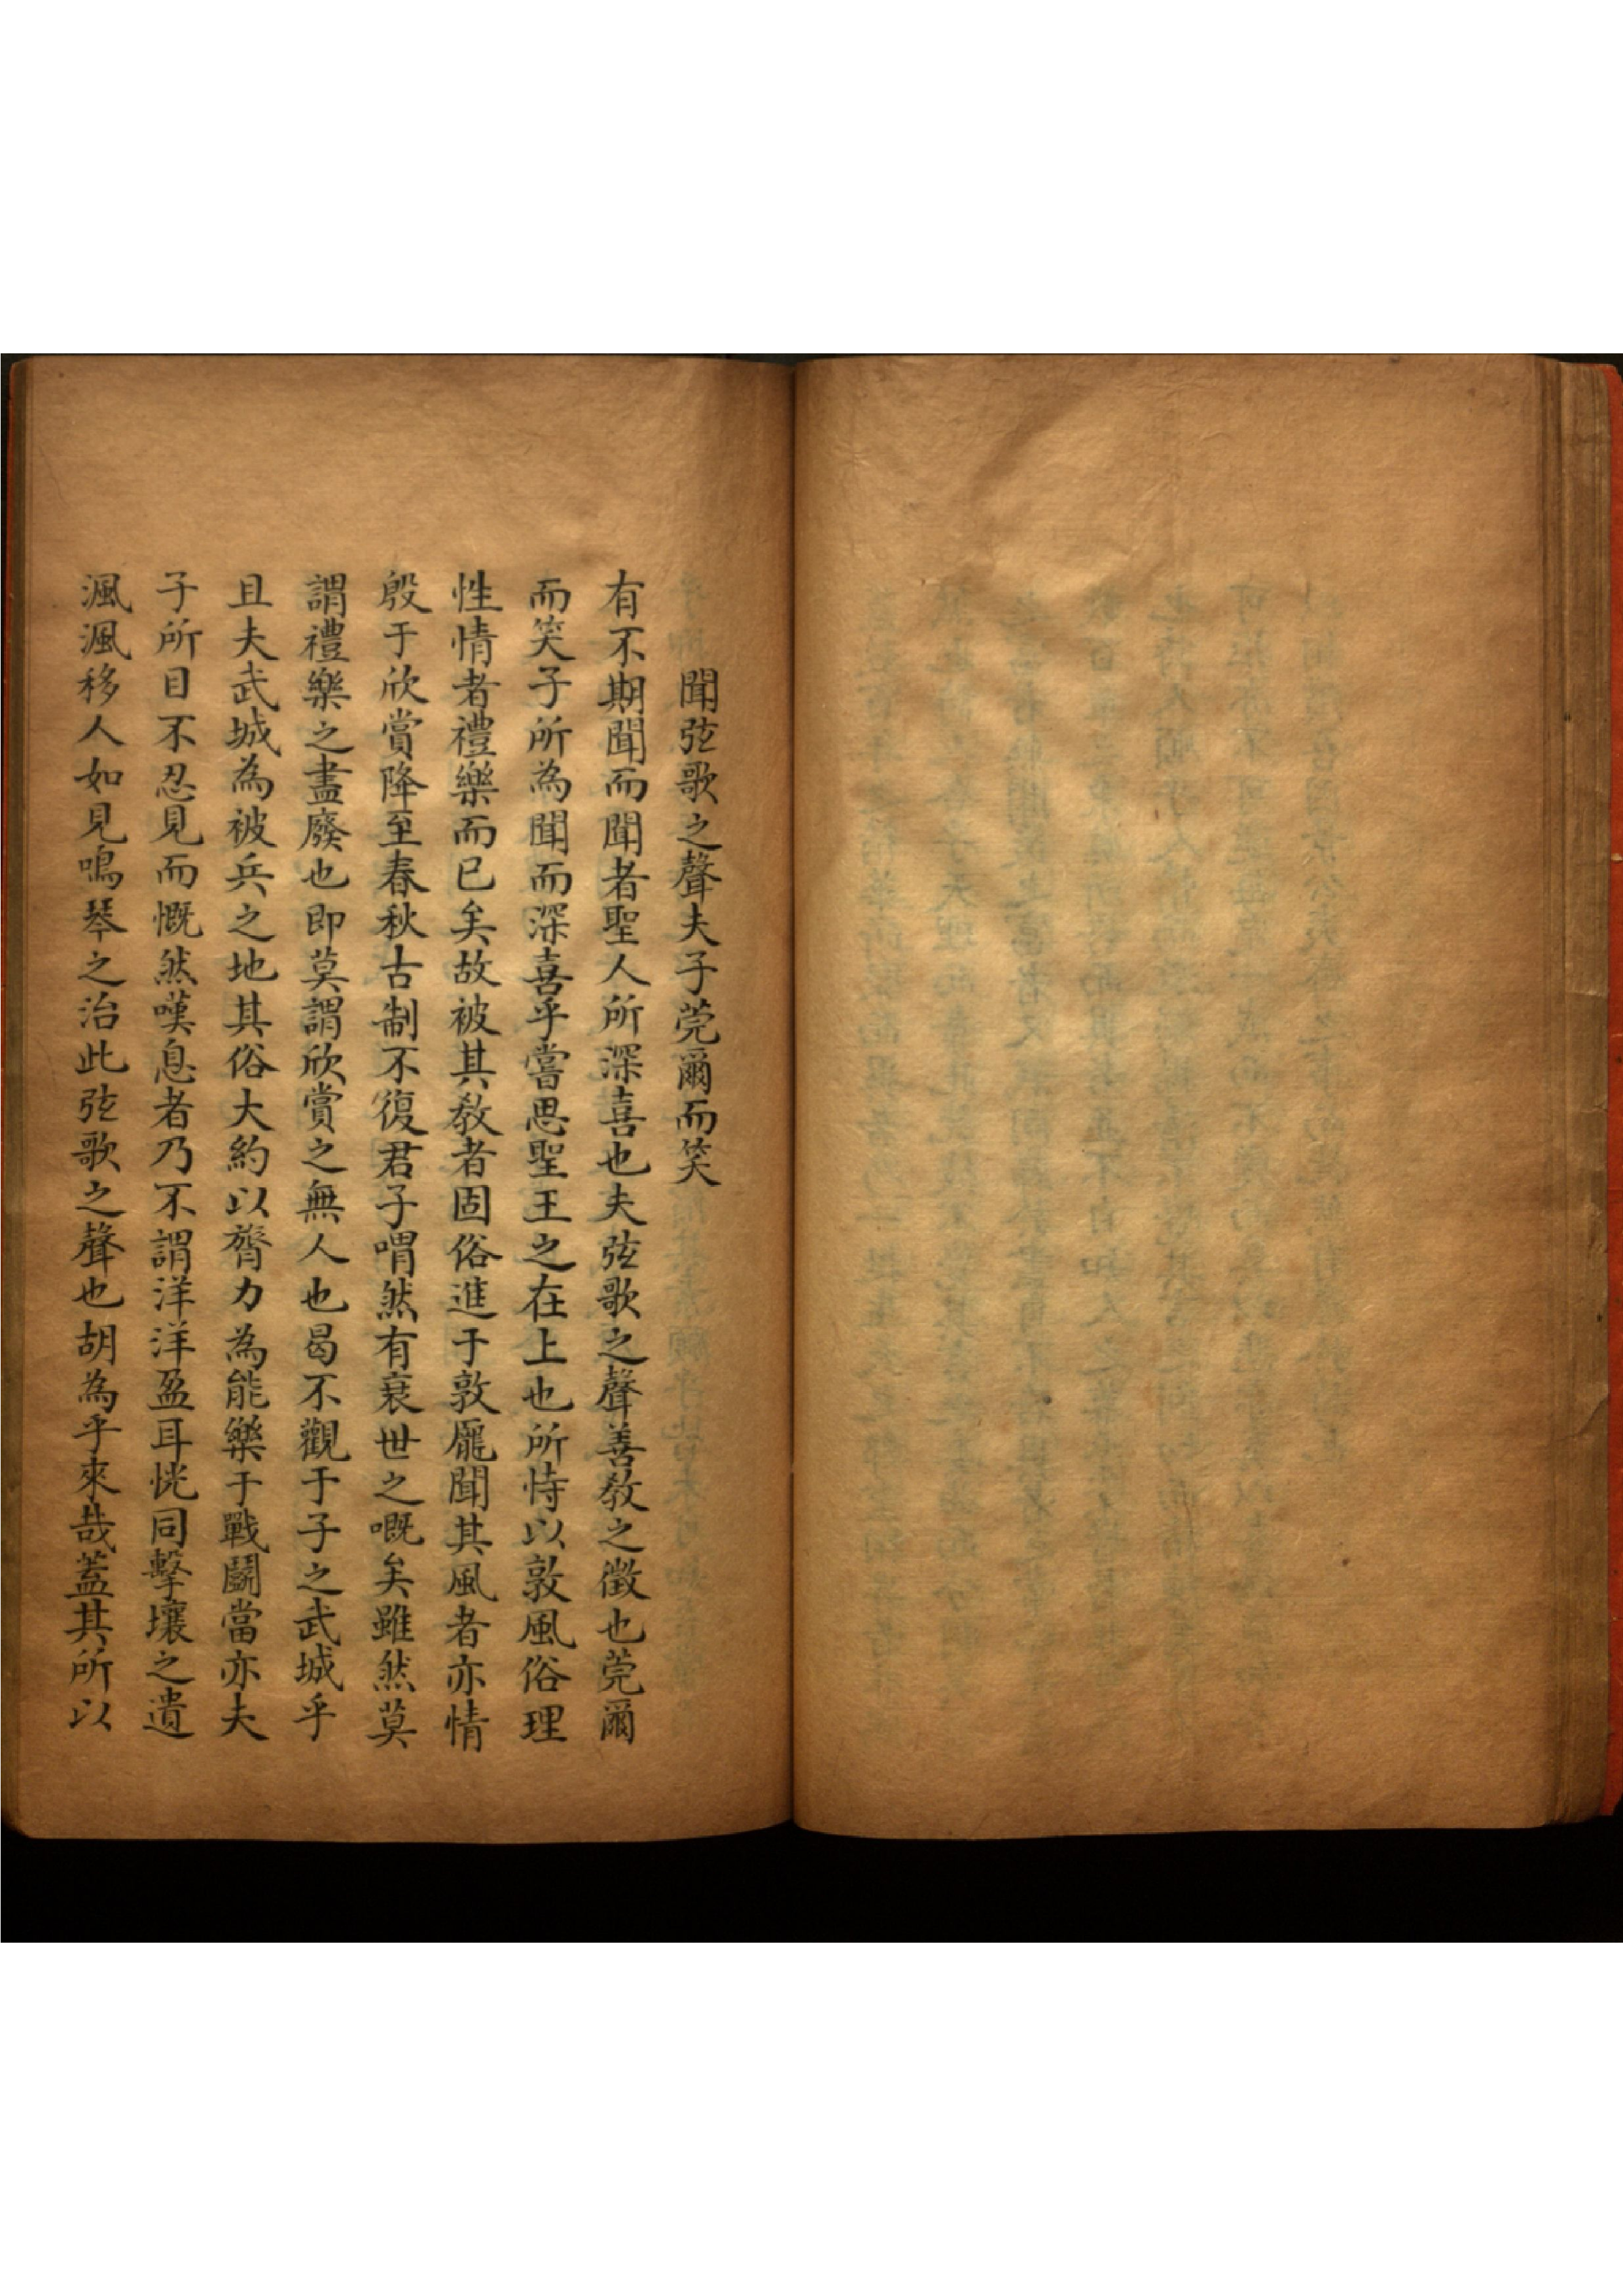 聞弦歌之聲夫子莞爾而笑
有不期聞而聞者聖人所深喜也夫弦歌之聲善教之徵也莞爾
而笑子所為聞而深喜乎嘗思聖王之在上也所恃以敦風俗理
性情者禮樂而已矣故被其教者固俗進于敦龐聞其風者亦情
殷于欣賞降至春秋古制不復君子喟然有衰世之嘅矣雖然莫
謂禮樂之盡廢也即莫謂欣賞之無人也曷不觀于子之武城乎
且夫武城為被兵之地其俗大約以膂力為能樂于戰鬭當亦夫
子所目不忍見而慨然嘆息者乃不謂洋洋盈耳恍同擊壤之遺
渢渢移人如見鳴琴之治此弦歌之聲也胡為乎來哉蓋其所以